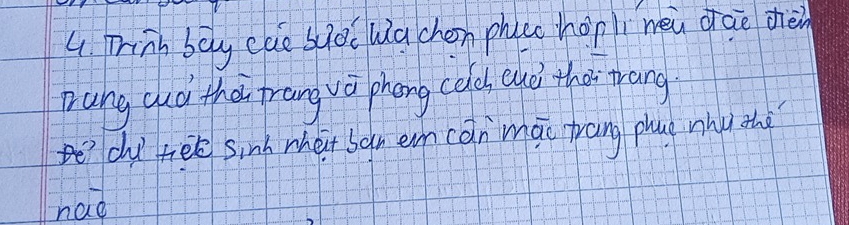 4. Trình bày các bước lựa chọn phục hợp lí nêu đặc điểm
trang của thời trang và phong cách của thời trang.
Để dự tiệc sinh nhật bạn em cần mặc trang phục như thế
nào